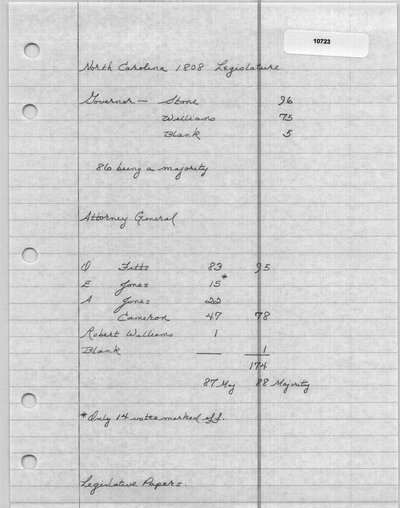 10723
North Carolina 1808 Legislature
Governor — Stone 96
Williams 75
Blank 5
86 being a majority
Attorney General
O Fitts 83 95
E Jones 15*
A Jones 22
Cameron 47 78
Robert Williams 1
Blank — 1
174
87 Maj 88 Majority
*Only 14 votes marked off.
Legislative Papers.